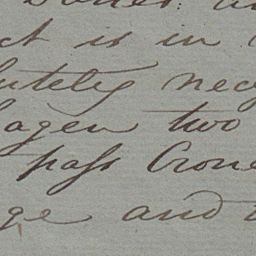 ct is in
lutely nec
hagen two
pass Crone
ge and